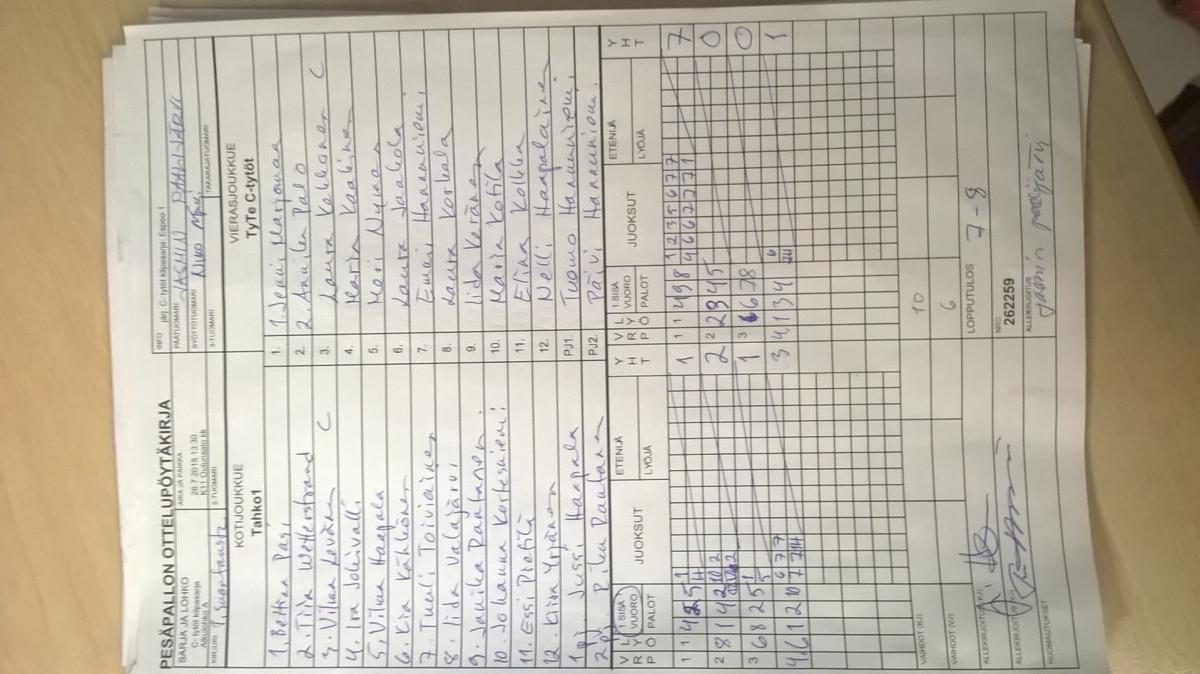 PESÄPALLON OTTELUPÖYTÄKIRJA
SARJA JA LOHKO
C-tytöt kilpasarja
Alkulohko A
AIKA JA PAIKKA
26.7.2015 13:30
K11 Oulunsalo kk
INFO
järj. C-tytöt kilpasarja: Espoo 1
PÄÄTUOMARI JASMIN
SYÖTTÖTUOMARI Niko Mäki
KIRJURI
2-TUOMARI
3-TUOMARI
TAKARAJATUOMARI
KOTIJOUKKUE
Tahko1
VIERASJOUKKUE
TyTe C-tytöt
1. Bettina Pasi
2. Tiia Wetterstrand
3. Vilma Levän C
4. Iria Jokivalli
5. Vilma Haapala
6. Kira Kähkönen
7. Tuuli Toiviainen
8. Iida Valajärvi
9. Janika Rantanen
10. Johanna Korteskniemi
11. Essi Pietilä
12. Elisa Yrjänen
1 pj. Jussi Haapala
2 pj Piku Rautanen
1. 1. Jenni Marjomaa
2. 2. Anniken Palo
3. Laura Kekkonen C
4. Maria Kaakinen
5. Mari Nyman
6. Laura Jaakola
7. Emmi Hannuniemi
8. Laura Korkala
9. Iida Keränen
10. Maria Kotila
11. Elina Kolkka
12. Nelli Haapalainen
PJ1. Tuomo Hannuniemi
PJ2. Päivi Hannuniemi
V L
R Y
P Ö
1.SISÄ
VUORO
PALOT
JUOKSUT
ETENIJÄ
LYÖJÄ
Y
H
T
V L
R Y
P Ö
1.SISÄ
VUORO
PALOT
JUOKSUT
ETENIJÄ
LYÖJÄ
Y
H
T
1 1 1
1 1 4 9 8 1 2 3 5 6 7 7 7
4 6 6 2 7 7 1
2 8 1 4 2
2 2 2 3 4 5 0
3 6 8 2 5 1
3 6 6 7 8 0
4 6 1 2 10 6 7 7 3
4 1 3 4 1
VAIHDOT (KJ) 10
VAIHDOT (VJ) 6
ALLEKIRJOITUS (KJ)
LOPPUTULOS 7 - 8
ALLEKIRJOITUS (VJ)
NRO
262259
HUOMAUTUKSET
ALLEKIRJOITUS
Jasmin